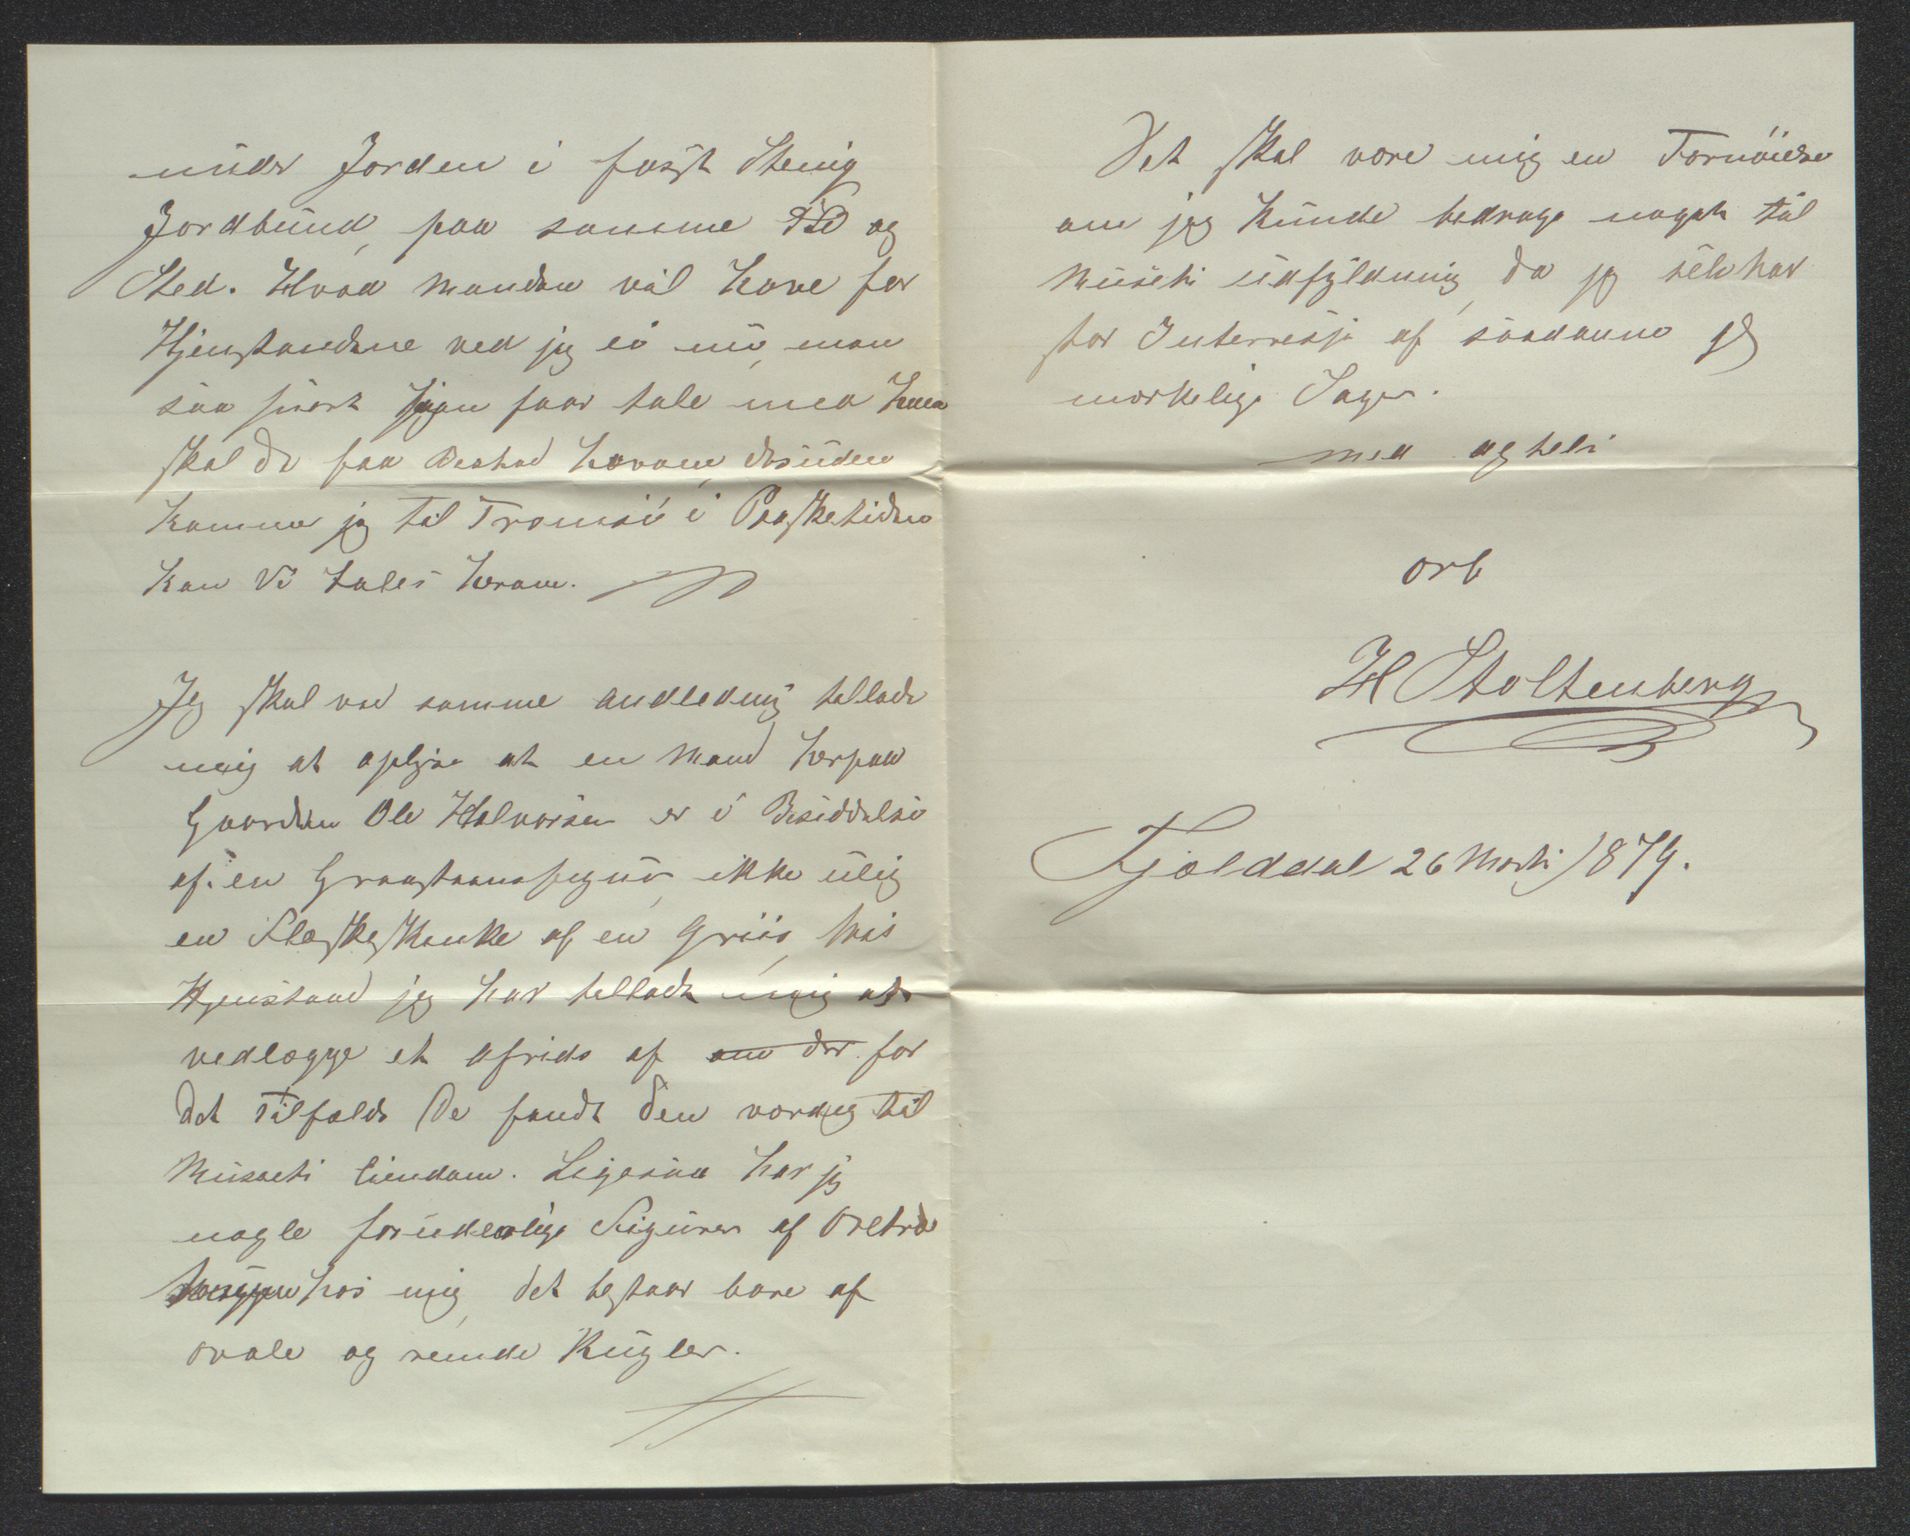 under Jorden i fast Stenig
Jordbund, paa samme Tid og
Sted. Hvad Manden vil have for
Gjenstandene ved jeg ei nu, men
saa snart jeg faar tale med ham
skal De faa Besked herom, desuden
kommer jeg til Tromsö i Paasketiden
kan Vi tales herom.
Jeg skal ved samme andledning tillade
mig at oplyse at en Mand herpaa
Gaarden Ole Halvorsen er i Besiddelse
af en Graastensfigur, ikke ulig
en Flæskeskanke af en Griis, hvis
Gjenstand jeg har tilladt mig at
vedlægge et afrids af om der for
det Tilfælde De fandt den værdig til
Museets Eiendom. Ligesaa har jeg
nogle forunderlige Figurer af Oretræ
hos mig, det bestaar bare af
ovale og runde Kugler.
Det skal være mig en Fornöielse
om jeg kunde bedrage noget til
Museets udfyldning, da jeg selv har
stor Interresse af saadanne
mærkelige Sager.
med agtelse
ærb
H Stoltenberg
Kjelddal 26 Marts 1879.